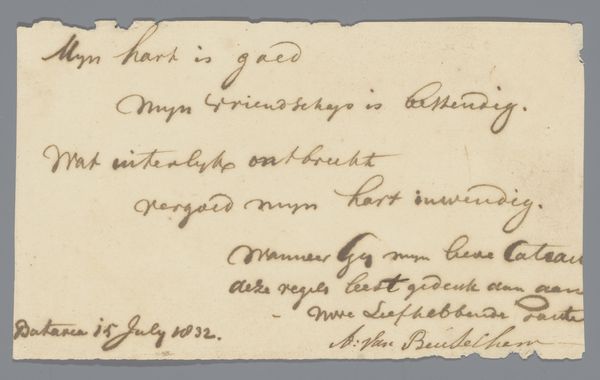 Myn hart is goed
myn vriendschap is bestendig.
Wat uiterlyk ontbreekt
vergoed myn hart inwendig.
Wanneer Gy myn lieve Cateau
deze regels leest gedenk dan aan
Uwe Liefhebbende Tante
A: van Beusechem
Batavia 15 July 1832.